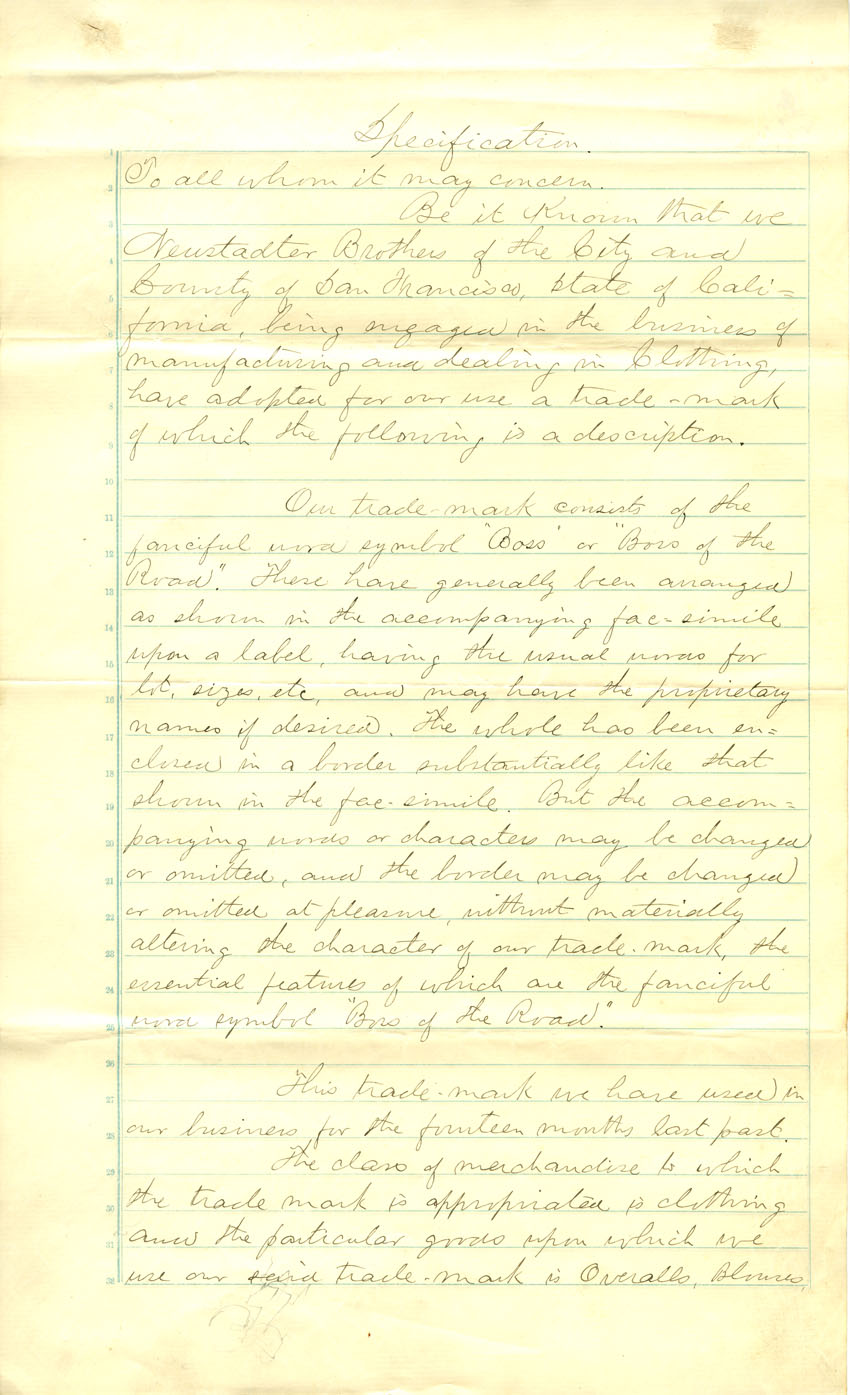 Specification.
To all whom it may concern.
Be it Known that we
Neustadter Brothers of the City and
County of San Francisco, State of Cali=
fornia, being engaged in the business of
manufacturing and dealing in Clothing,
have adopted for our use a trade-mark
of which the following is a description.
Our trade-mark consists of the
fanciful word symbol "Boss" or "Boss of the
Road". These have generally been arranged
as shown in the accompanying fac-simile
upon a label, having the usual words for
lot, sizes, etc, and may have the proprietary
names if desired. The whole has been en=
closed in a border substantially like that
shown in the fac-simile. But the accom=
panying words or characters may be changed
or omitted, and the border may be changed
or omitted at pleasure, without materially
altering the character of our trade-mark, the
essential features of which are the fanciful
word symbol "Boss of the Road".
This trade-mark we have used in
our business for the fourteen months last past.
The class of merchandise to which
the trade mark is appropriated is clothing
and the particular goods upon which we
use our said trade-mark is Overalls, Blouses,